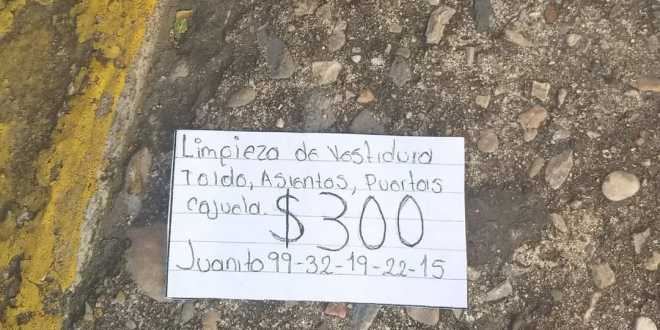 Limpieza de Vestidura
Toldo, Asientos, Puertas
cajuela. $300
Juanito 99-32-19-22-15